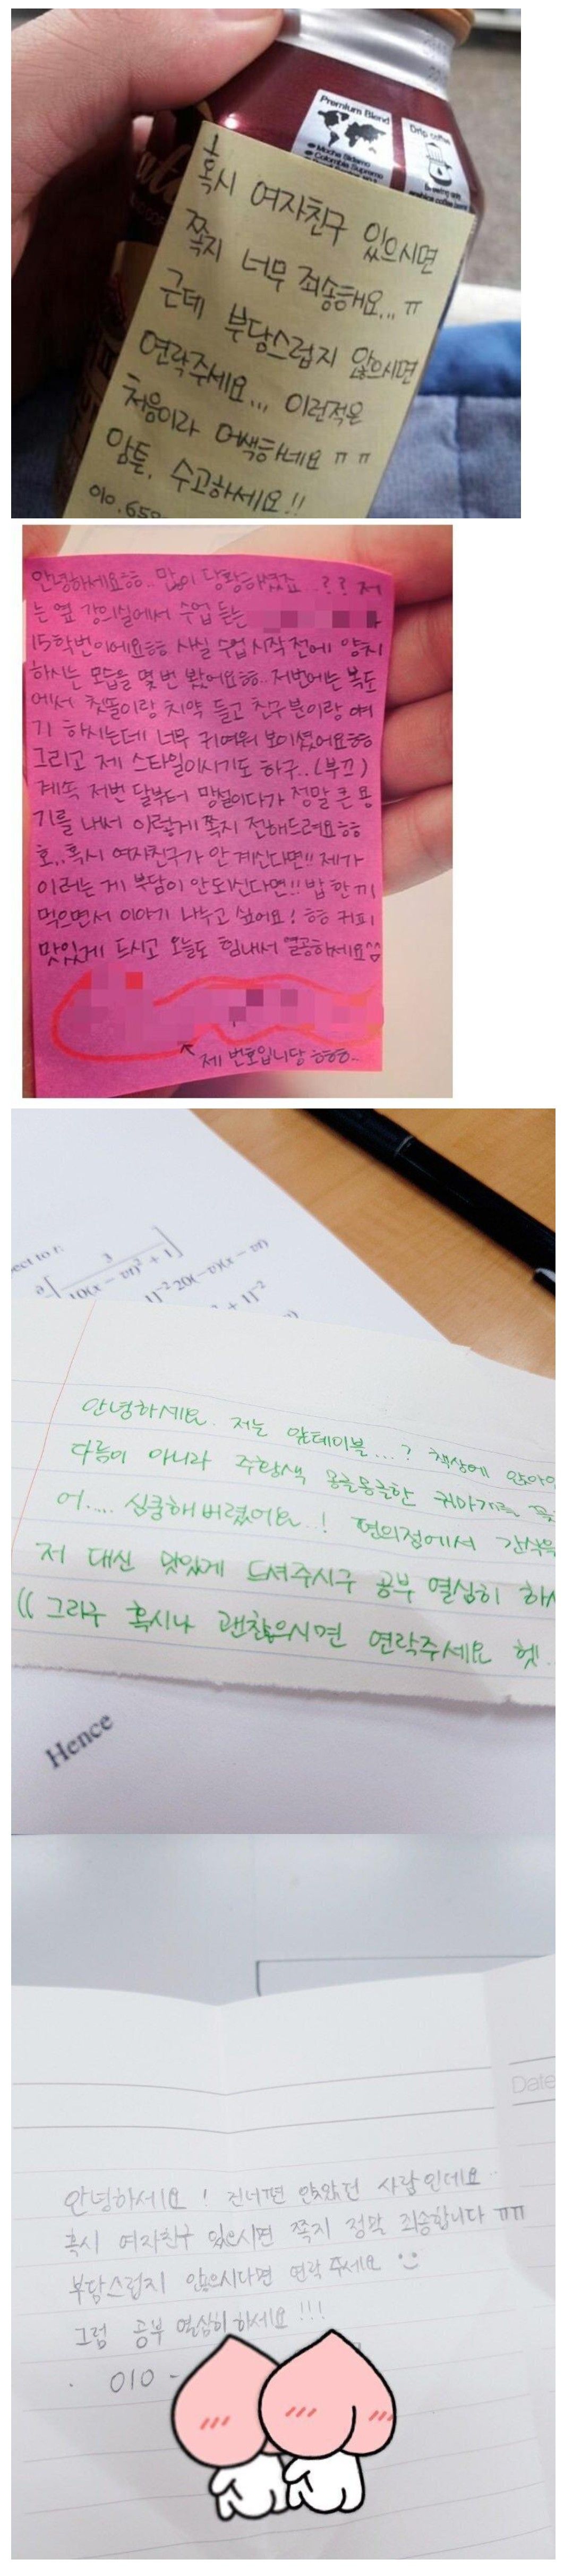 Premium Blend
Mocha Sidamo
Colombia Supremo
Drip coffee
Brewing with
arabica coffee
혹시 여자친구 있으시면
쪽지 너무 죄송해요... ㅠ
근데 부담스럽지 않으시면
연락주세요... 이런적은
처음이라 어색하네요 ㅠㅠ
암튼, 수고하세요!!
010.650
안녕하세요ㅎㅎ.. 많이 당황하셨죠..?? 저
는 옆 강의실에서 수업 듣는
15학번이에요ㅎㅎ 사실 수업 시작 전에 양치
하시는 모습을 몇 번 봤어요ㅎㅎ.. 저번에는 복도
에서 칫똘이랑 치약 들고 친구분이랑 얘
기 하시는데 너무 귀여워 보이셨어요ㅎㅎ
그리고 제 스타일이시기도 하구..(부끄)
계속 저번 달부터 망설이다가 정말 큰 용
기를 내서 이렇게 쪽지 전해드려요ㅎㅎ
호,,혹시 여자친구가 안계신다면!! 제가
이러는 게 부담이 안되신다면!! 밥 한끼
먹으면서 이야기 나누고 싶어요! ㅎㅎ 커피
맛있게 드시고 오늘도 힘내서 열공하세요^^
제 번호입니당 ㅎㅎㅎ..
ect to r:
3
10(x − vt)² + 1
1]⁻² 20(−v)(x − vt)
+ 1]⁻²
안녕하세요. 저는 앞테이블...? 책상에 앉아
다름이 아니라 주황색 몽글몽글한 귀마개를
어.... 심쿵해버렸어요..! 편의점에서 간식을
저 대신 맛있게 드셔주시구 공부 열심히 하
(( 그라구 혹시나 괜찮으시면 연락주세요 헷.
Hence
Date
안녕하세요! 건너편 앉았던 사람인데요..
혹시 여자친구 있으시면 쪽지 정말 죄송합니다 ㅠㅠ
부담스럽지 않으시다면 연락 주세요
그럼 공부 열심히 하세요!!!
010 -